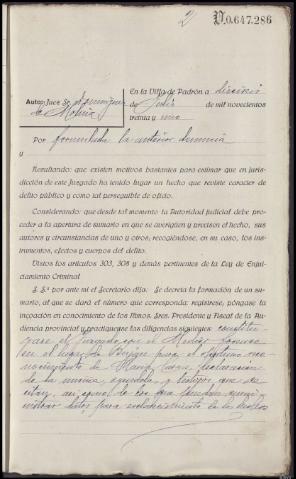 2
V.0.647.286
En la Villa de Padrón a dieciseis
Auto: Juez Sr. Dominguez
de Molina
de Julio de mil novecientos
treinta y uno
Por formulada la anterior denuncia
y
Resultando: que existen motivos bastantes para estimar que en juris-
dicción de este Juzgado ha tenido lugar un hecho que reviste carácter de
delito público y como tal perseguible de oficio.
Considerando: que desde tal momento la Autoridad judicial debe pro-
ceder a la apertura de sumario en que se averigüen y precisen el hecho, sus
autores y circunstancias de uno y otros, recogiéndose, en su caso, los ins-
trumentos, efectos y cuerpo del delito.
Vistos los artículos 303, 308 y demás pertinentes de la Ley de Enjui-
ciamiento Criminal
S. Sª. por ante mi el Secretario dijo: Se decreta la formación de un
sumario, al que se dará el número que corresponda: regístrese, póngase la
incoación en conocimiento de los Iltmos. Sres. Presidente y Fiscal de la Au-
diencia provincial y practíquense las diligencias siguientes: constitú-
yase el Juzgado con el Médico forense
en el lugar de para el oportuno reco-
nocimiento de María declaración
de la misma, y testigos que se
citan, así como de los que puedan